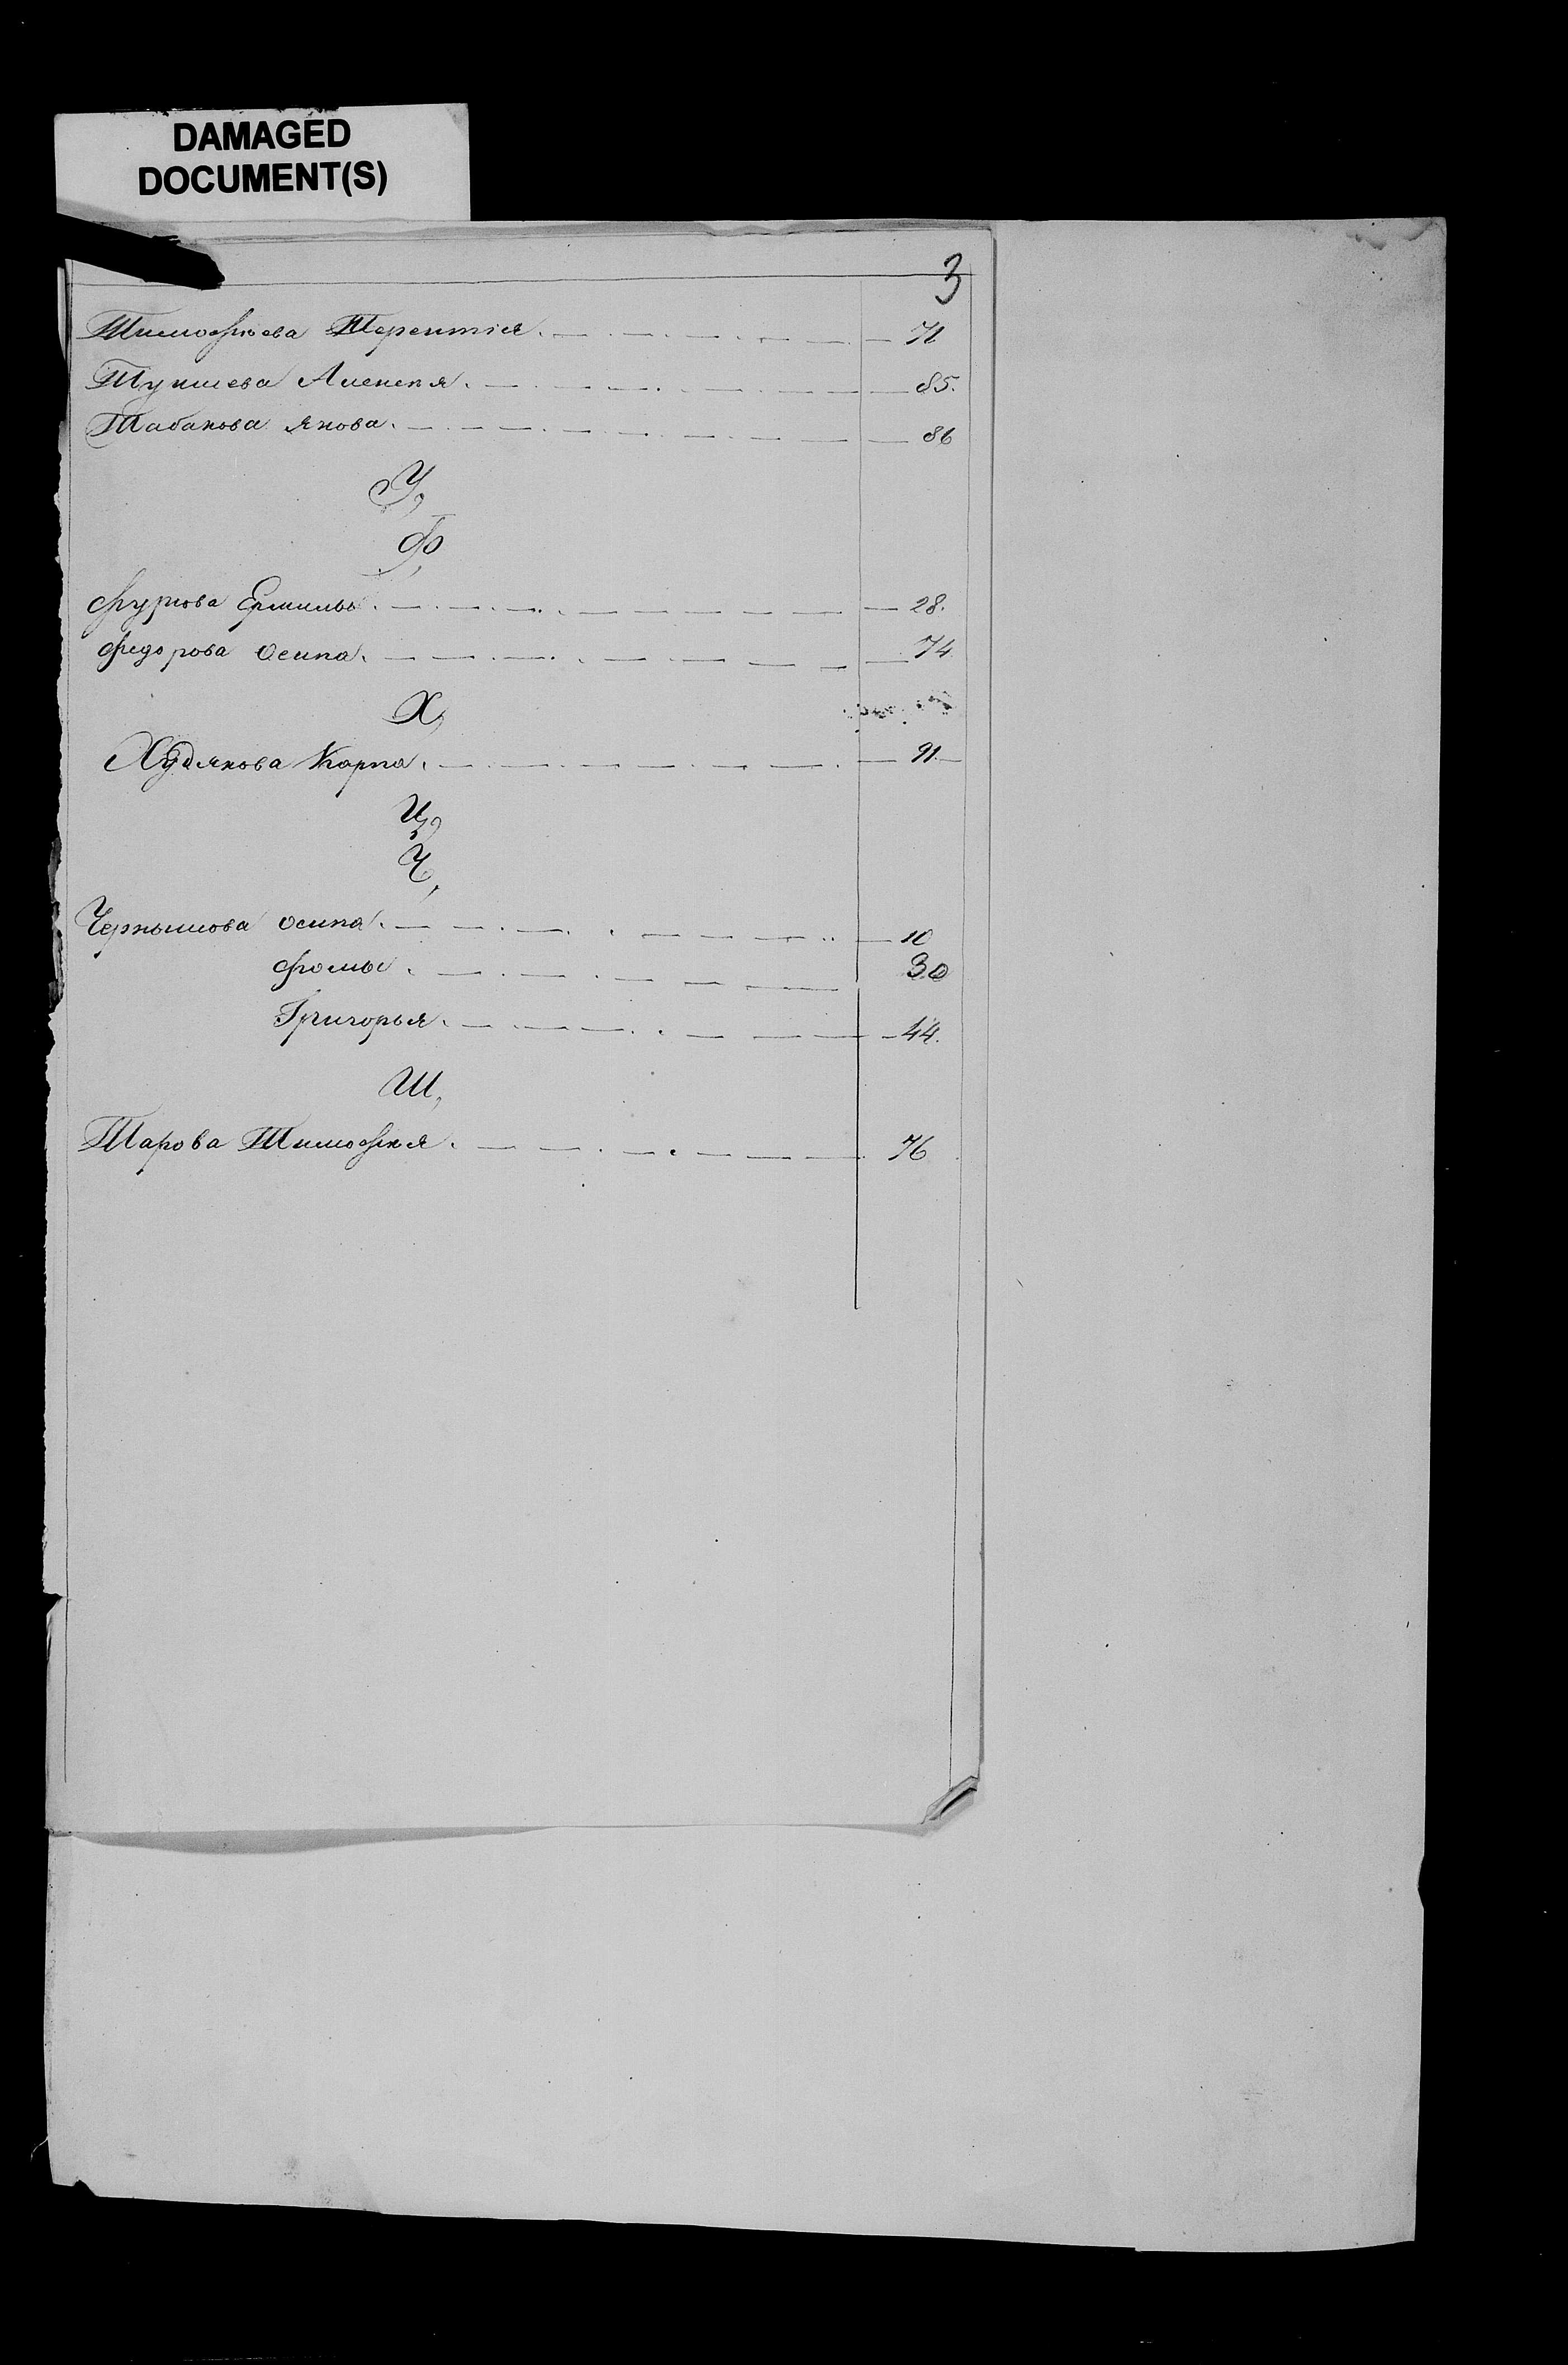 DAMAGED
DOCUMENT(S)
3
Тимофѣева Терентія. 71
Тупицева Алексѣя. 85.
Табакова Якова. 86
У,
Ф,
Фурнова Ермилы. 28.
Федорова Осипа. 74
Х,
Худякова Карпа. 91.
Ц,
Ч,
Чернышова Осипа. 10
Фомы. 30
Григорья. 44.
Ш,
Шарова Тимофея. 76